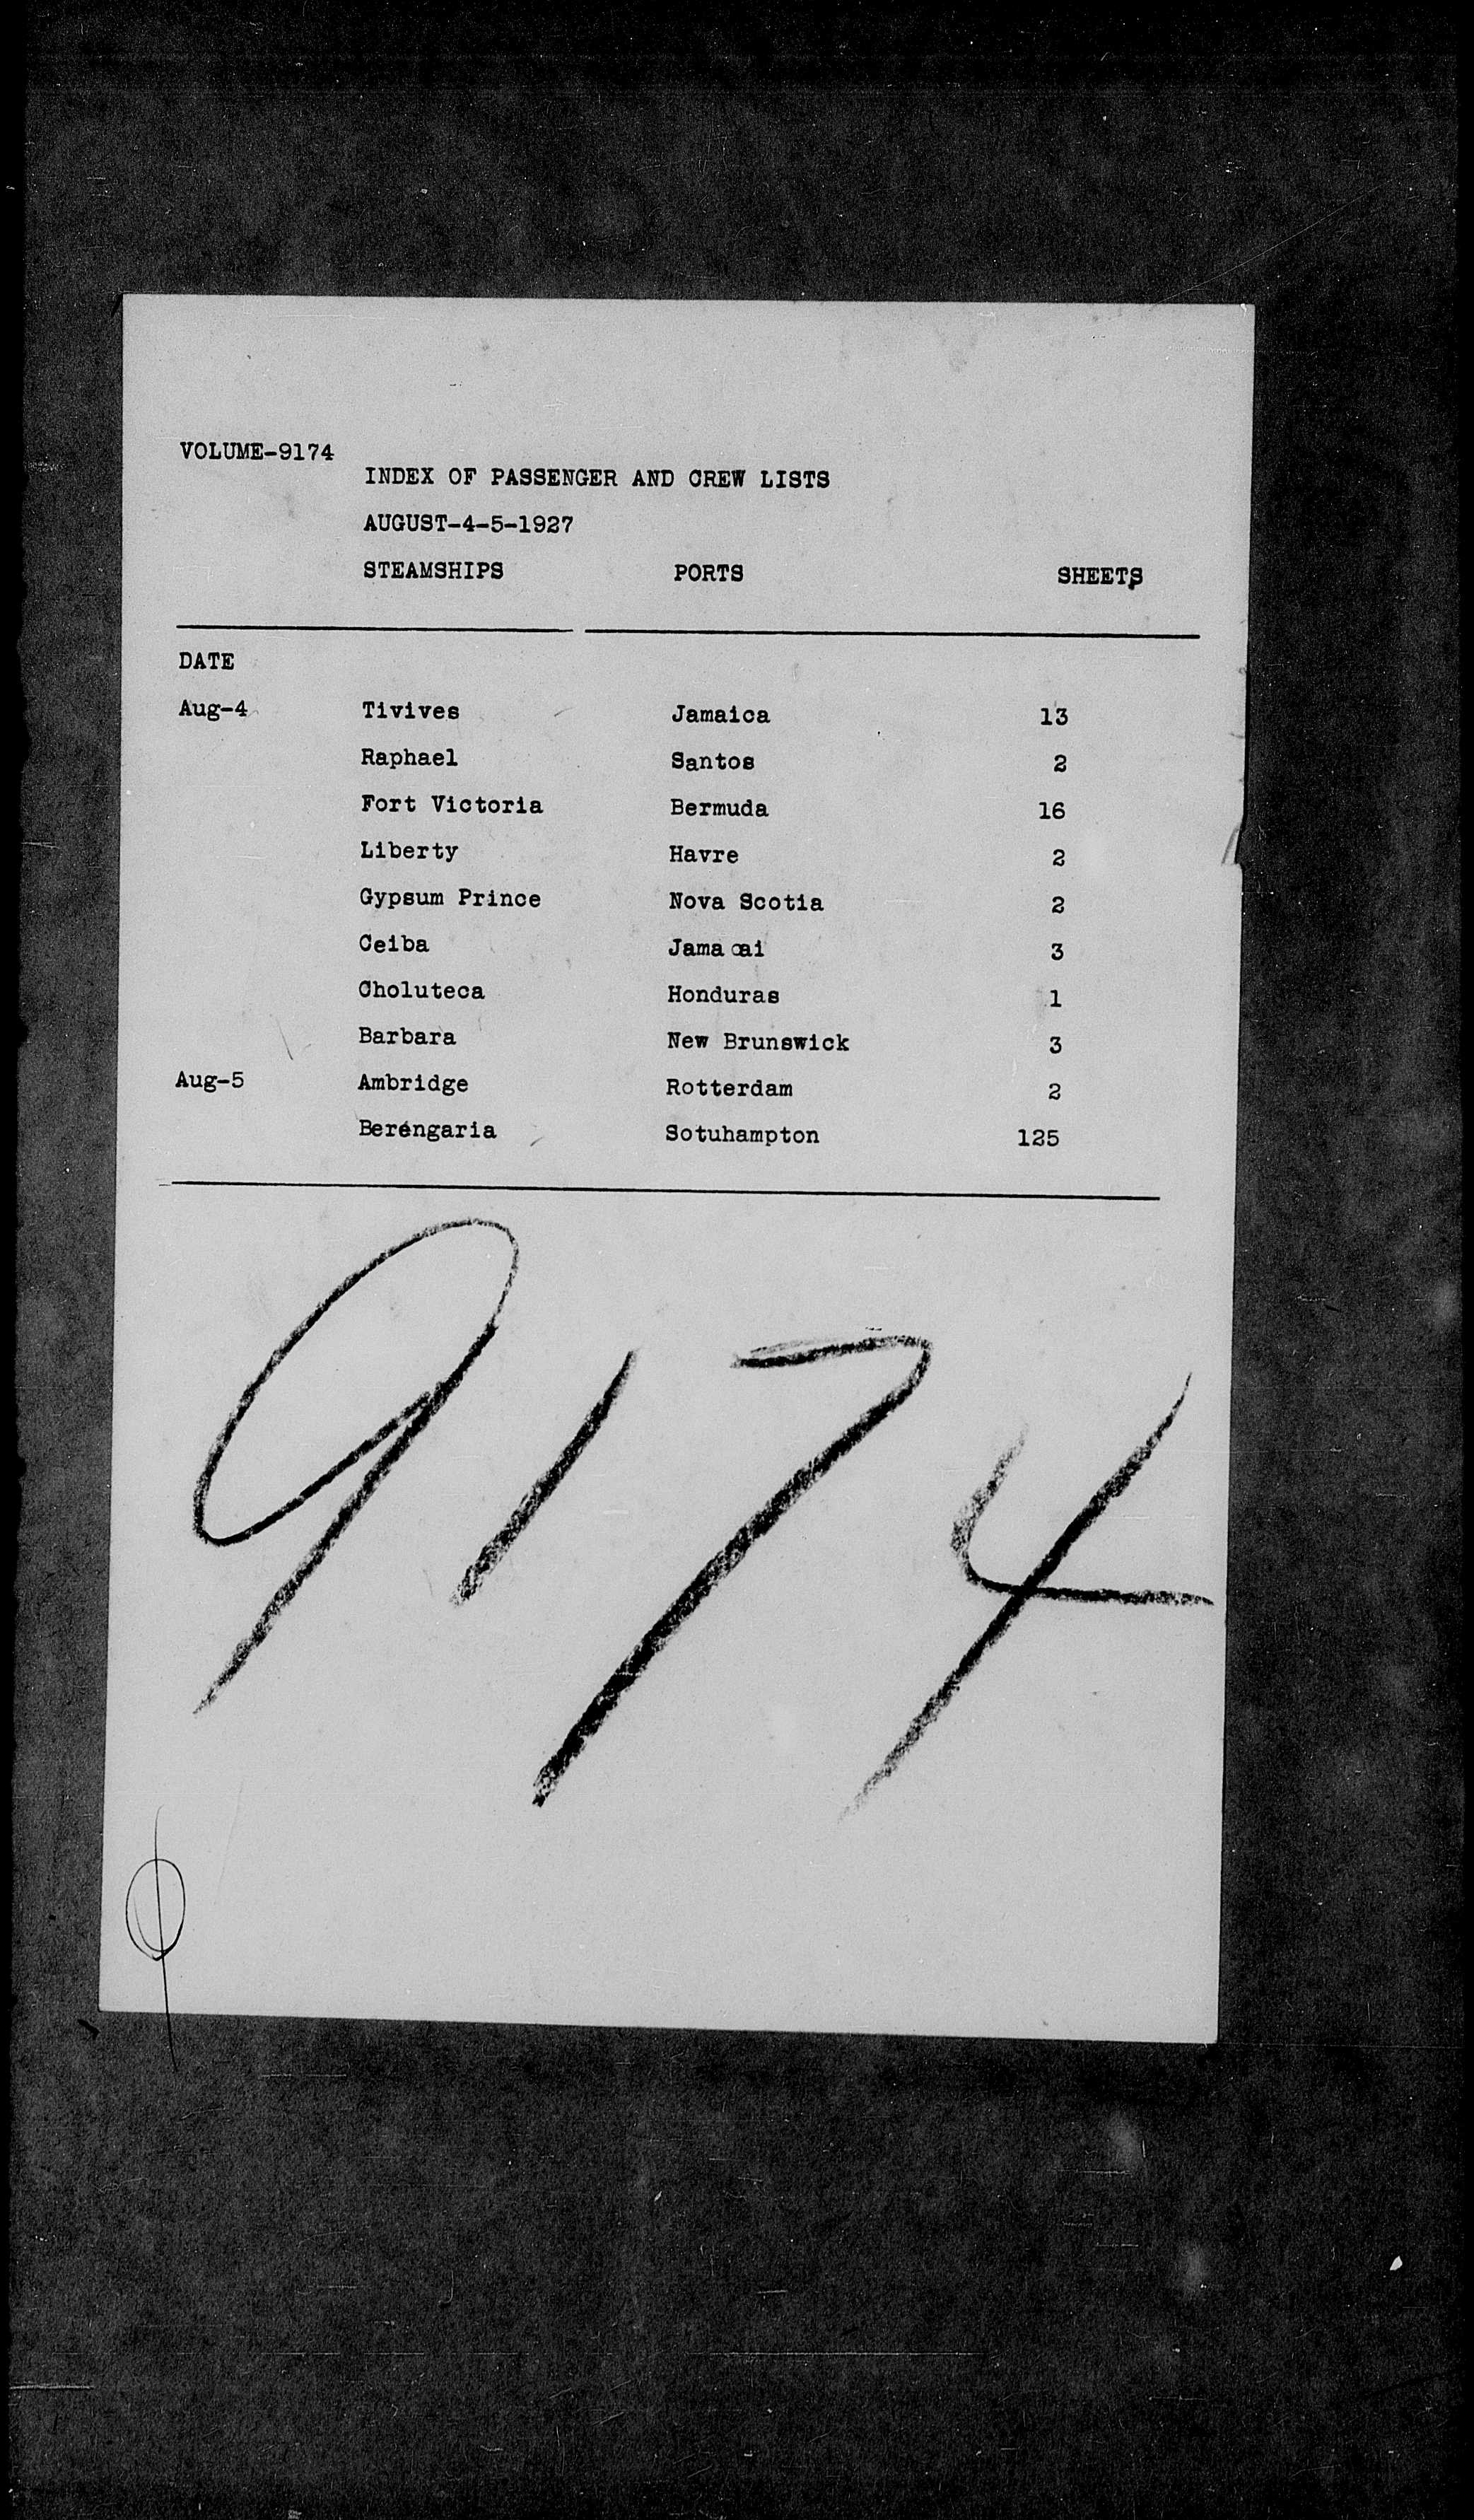 VOLUME-9174
INDEX OF PASSENGER AND CREW LISTS
AUGUST-4-5-1927
STEAMSHIPS PORTS SHEETS
DATE
Aug-4 Tivives Jamaica 13
Raphael Santos 2
Fort Victoria Bermuda 16
Liberty Havre 2
Gypsum Prince Nova Scotia 2
Ceiba Jamacai 3
Choluteca Honduras 1
Barbara New Brunswick 3
Aug-5 Ambridge Rotterdam 2
Berengaria Sotuhampton 125
9174